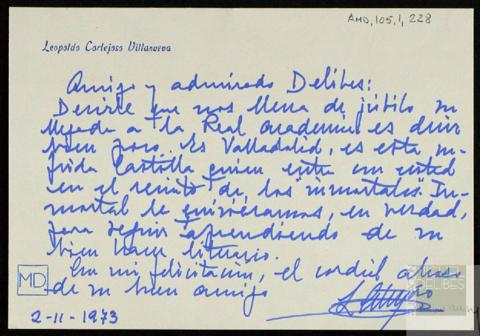 AMD, 105, 1, 228
Leopoldo Cortejoso Villanueva
Amigo y admirado Delibes:
Decirle que nos llena de júbilo su
llegada a la Real Academia es decir
bien poco. Es Valladolid, es esta su-
frida Castilla quien entra con usted
en el recinto de los "inmortales". In-
mortal le quisiéramos, en verdad,
para seguir aprendiendo de su
bien hacer literario.
Con mi felicitación, el cordial abrazo
de su buen amigo
MD
2-11-1973
DELIBES